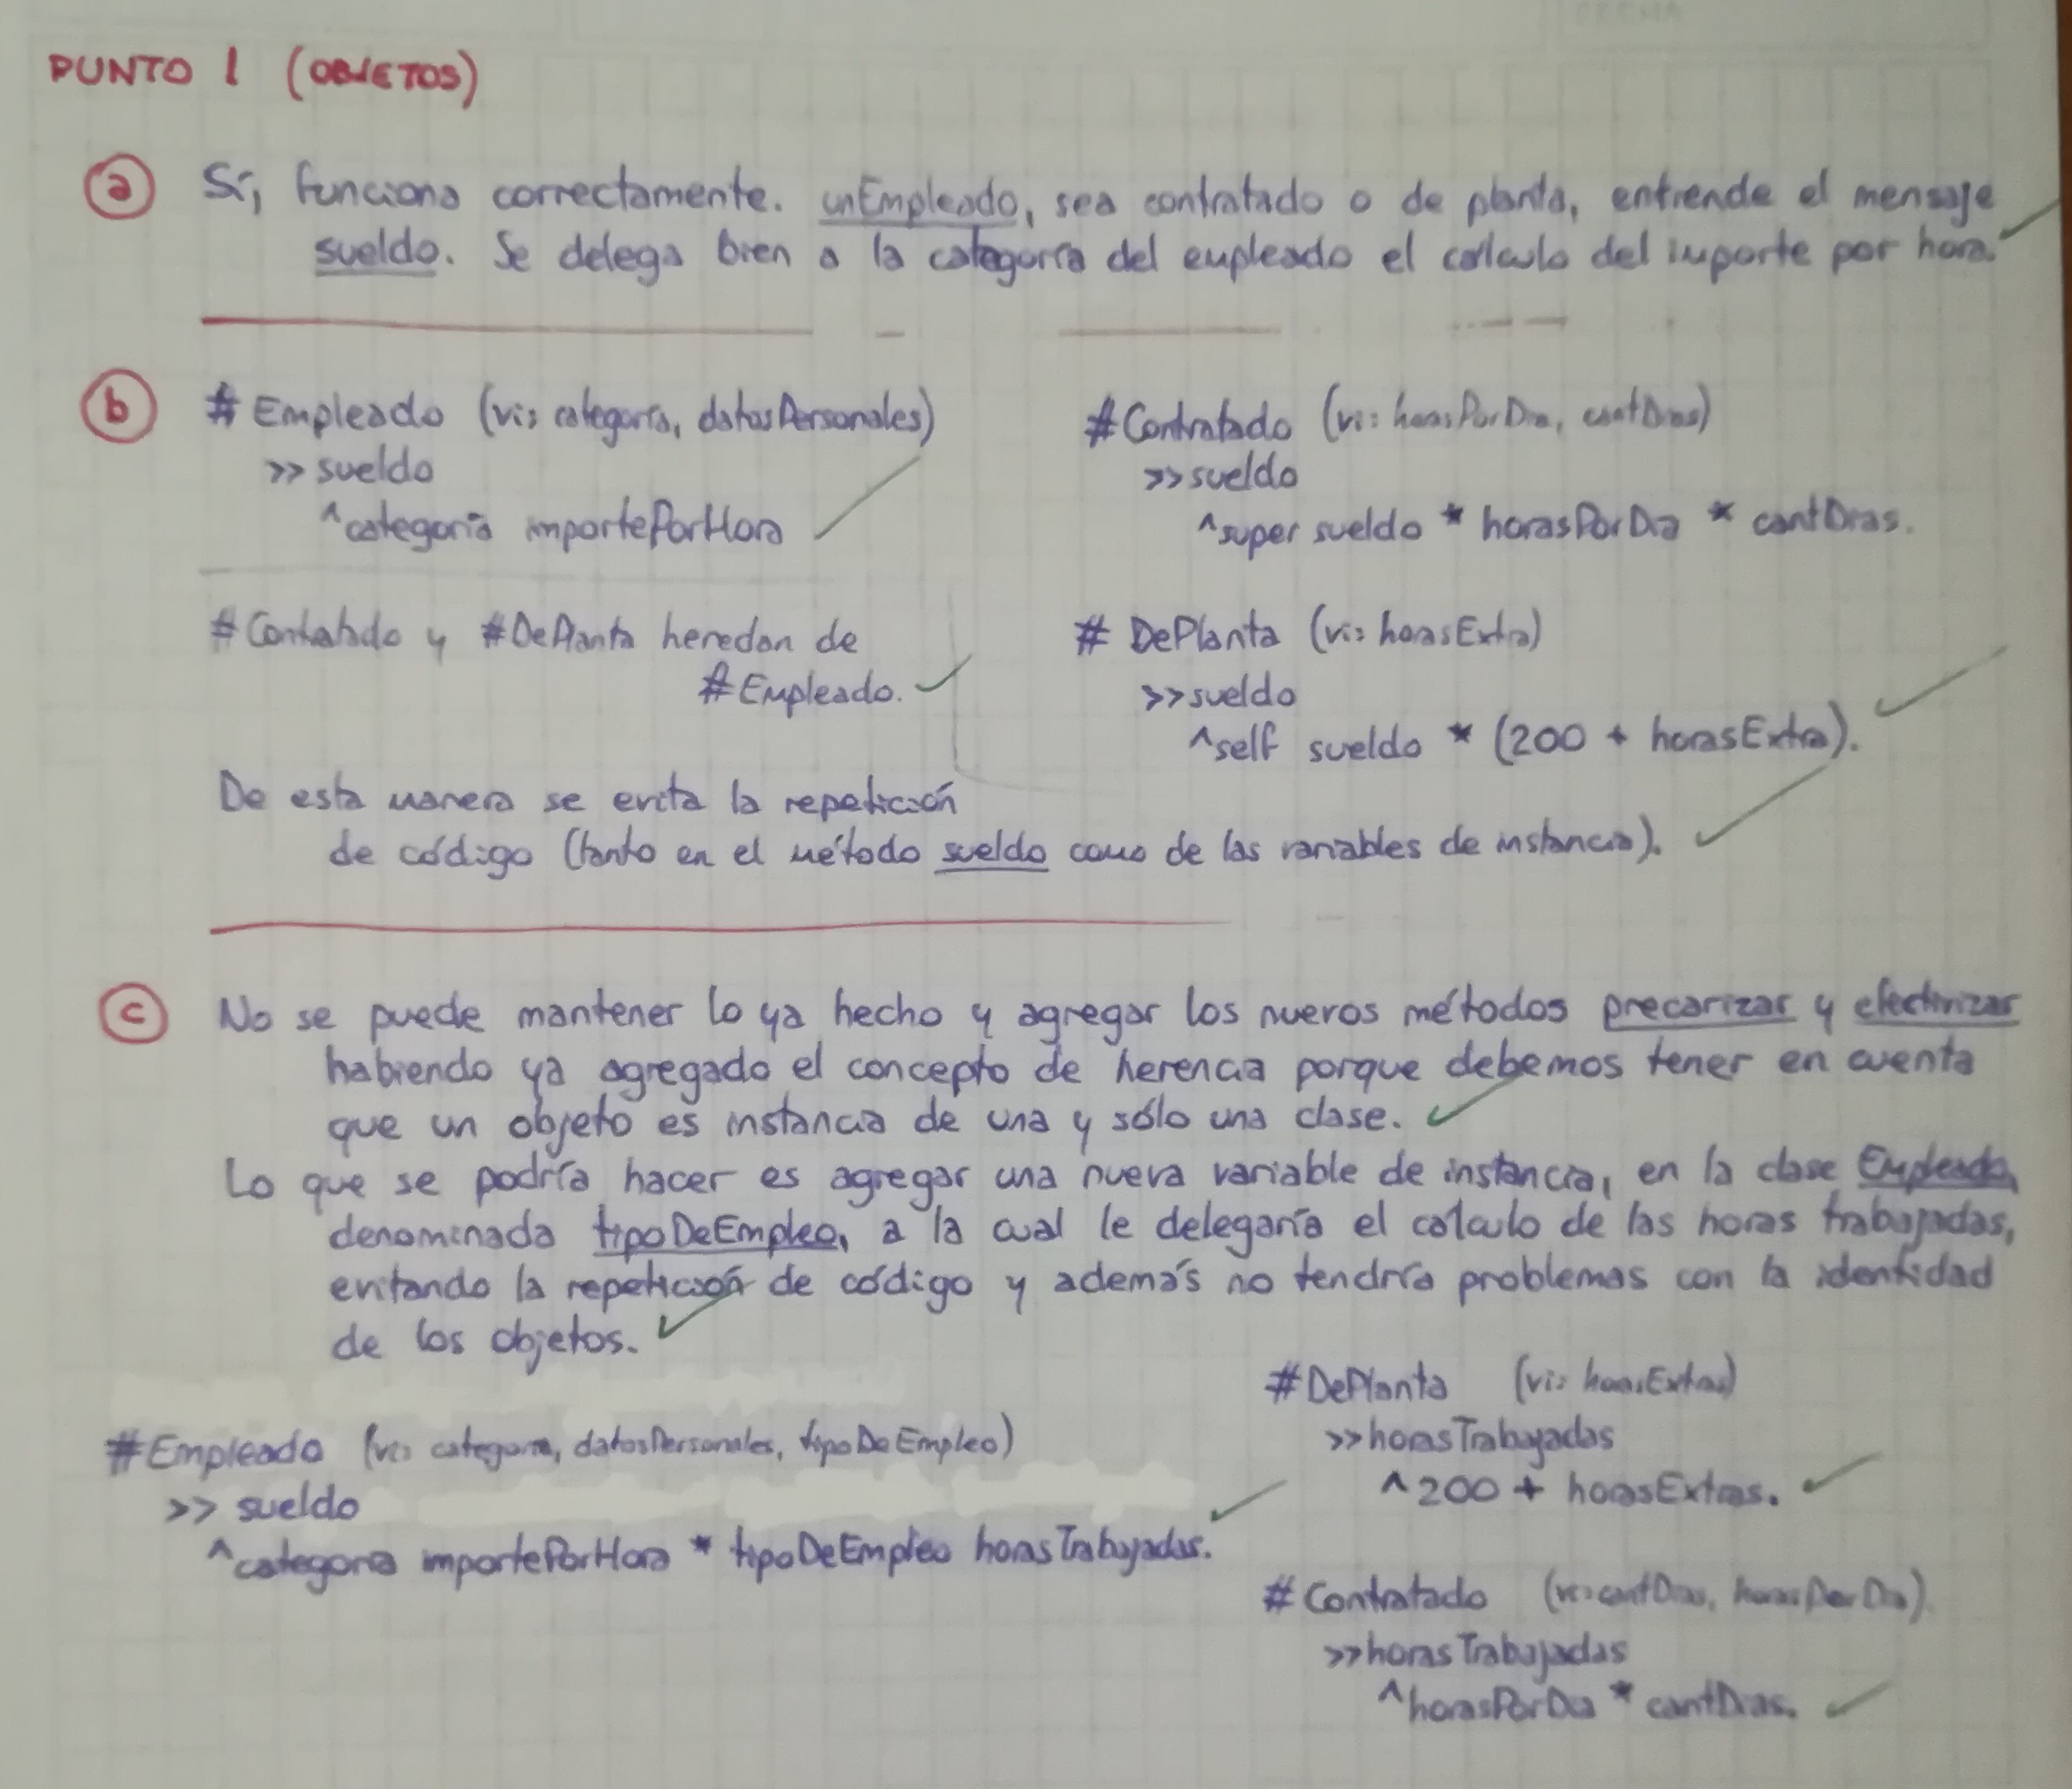 FECHA
PUNTO 1 (OBJETOS)
a Sí, funciona correctamente. unEmpleado, sea contratado o de planta, entiende el mensaje
sueldo. Se delega bien a la categoría del empleado el calculo del importe por hora.
b # Empleado (vi: categoría, datosPersonales)
>> sueldo
^categoría importePorHora
#Contratado (vi: horasPorDia, cantDias)
>>sueldo
^super sueldo * horasPorDia * cantDias.
#Contratado y #DePlanta heredan de
#Empleado.
# DePlanta (vi: horasExtra)
>>sueldo
^self sueldo * (200 + horasExtra).
De esta manera se evita la repetición
de código (tanto en el método sueldo como de las variables de instancia).
c No se puede mantener lo ya hecho y agregar los nuevos métodos precarizar y efectivizar
habiendo ya agregado el concepto de herencia porque debemos tener en cuenta
que un objeto es instancia de una y sólo una clase.
Lo que se podría hacer es agregar una nueva variable de instancia, en la clase Empleado,
denominada tipoDeEmpleo, a la cual le delegaría el calculo de las horas trabajadas,
evitando la repetición de código y además no tendría problemas con la identidad
de los objetos.
#Empleado (vi: categoria, datosPersonales, tipoDeEmpleo)
>> sueldo
^categoria importePorHora * tipoDeEmpleo horasTrabajadas.
#DePlanta (vi: horasExtras)
>>horasTrabajadas
^200 + horasExtras.
#Contratado (vi: cantDias, horasPorDia)
>>horasTrabajadas
^horasPorDia * cantDias.